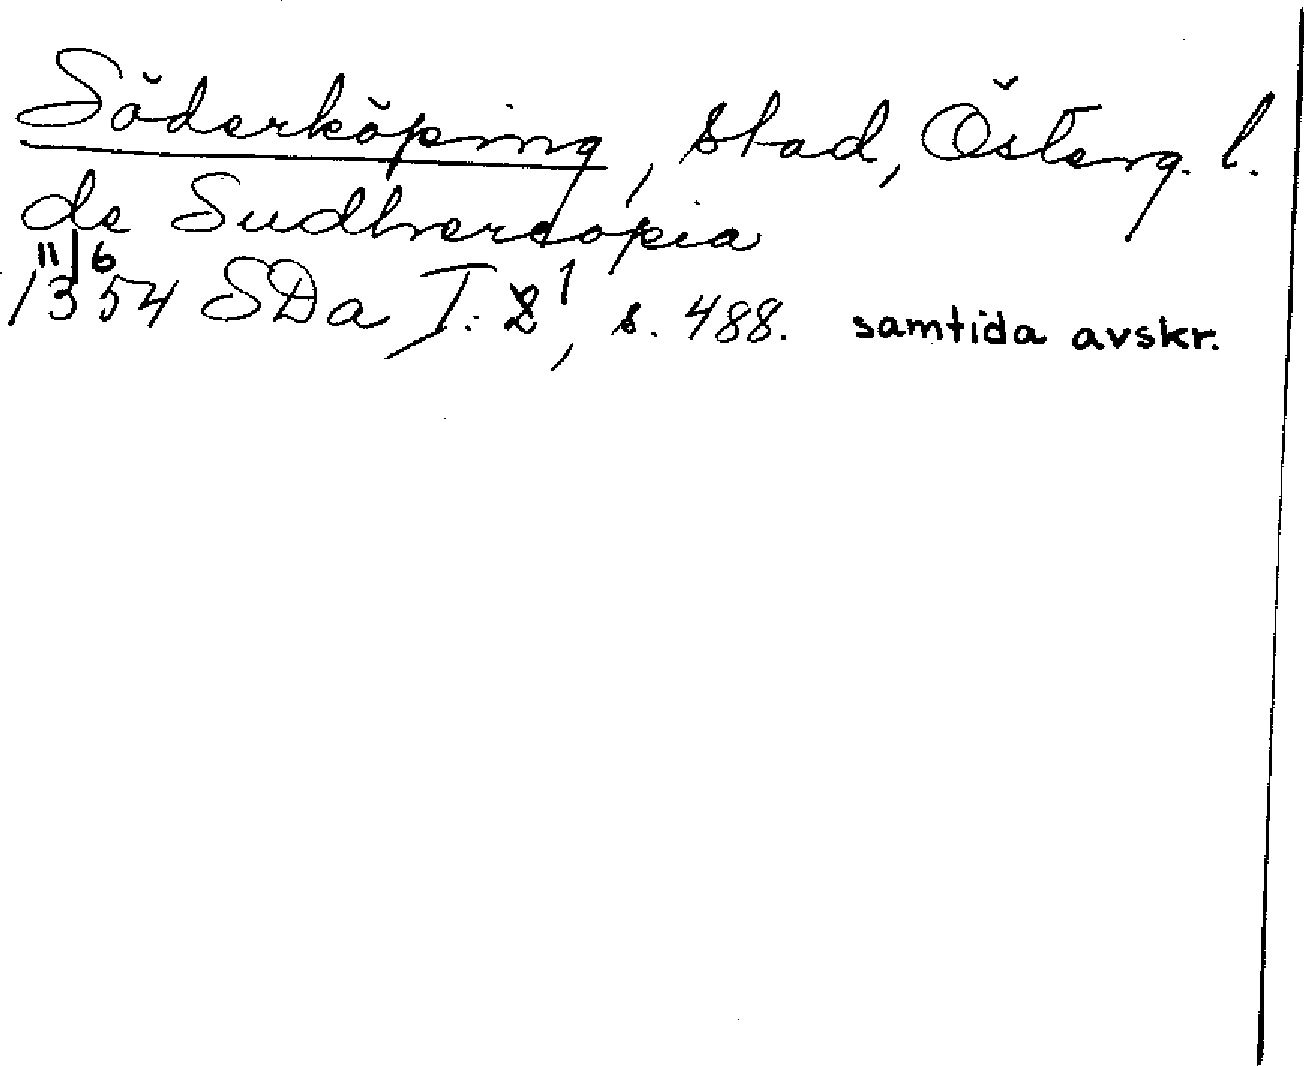 Söderköping, stad, Österg. l.
de Sudhercopia
11/6
1354 SDa I: 1, s. 488. samtida avskr.